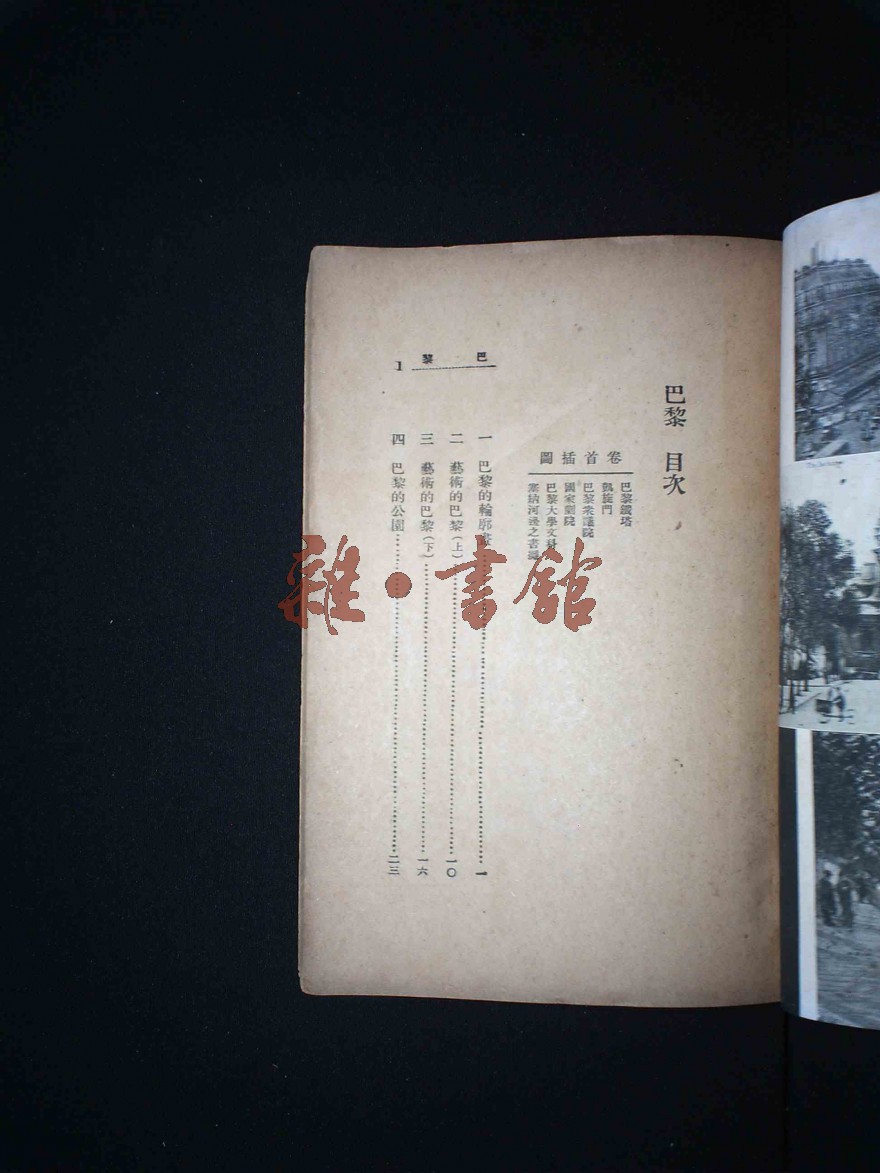 巴黎 目次
卷首插圖
巴黎鐵塔
凱旋門
巴黎衆議院
國家劇院
巴黎大學文科
塞納河邊之書
一 巴黎的輪廓 一
二 藝術的巴黎(上) 一〇
三 藝術的巴黎(下) 一六
四 巴黎的公園 二三
巴黎
1
雜·書館